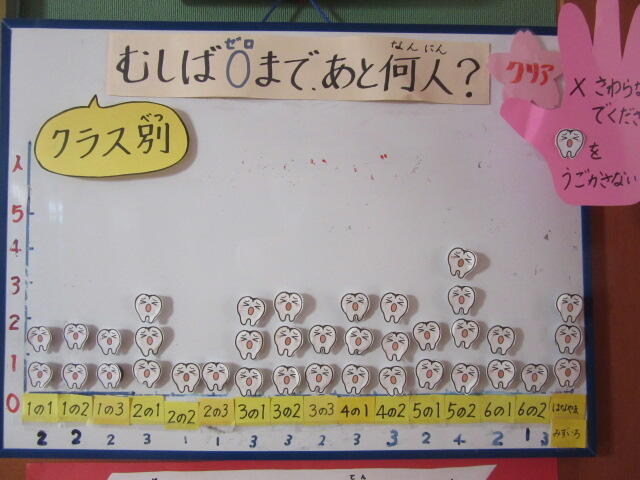 ゼロ なんにん
むしば0まで、あと何人？
クリア
×さわらな
でくださ
を
うごかさない
べつ
クラス別
人
5
4
3
2
1
0
1の1 1の2 1の3 2の1 2の2 2の3 3の1 3の2 3の3 4の1 4の2 5の1 5の2 6の1 6の2 はなやま
みずいろ
2 2 2 3 1 1 3 3 3 3 3 2 4 2 1 3